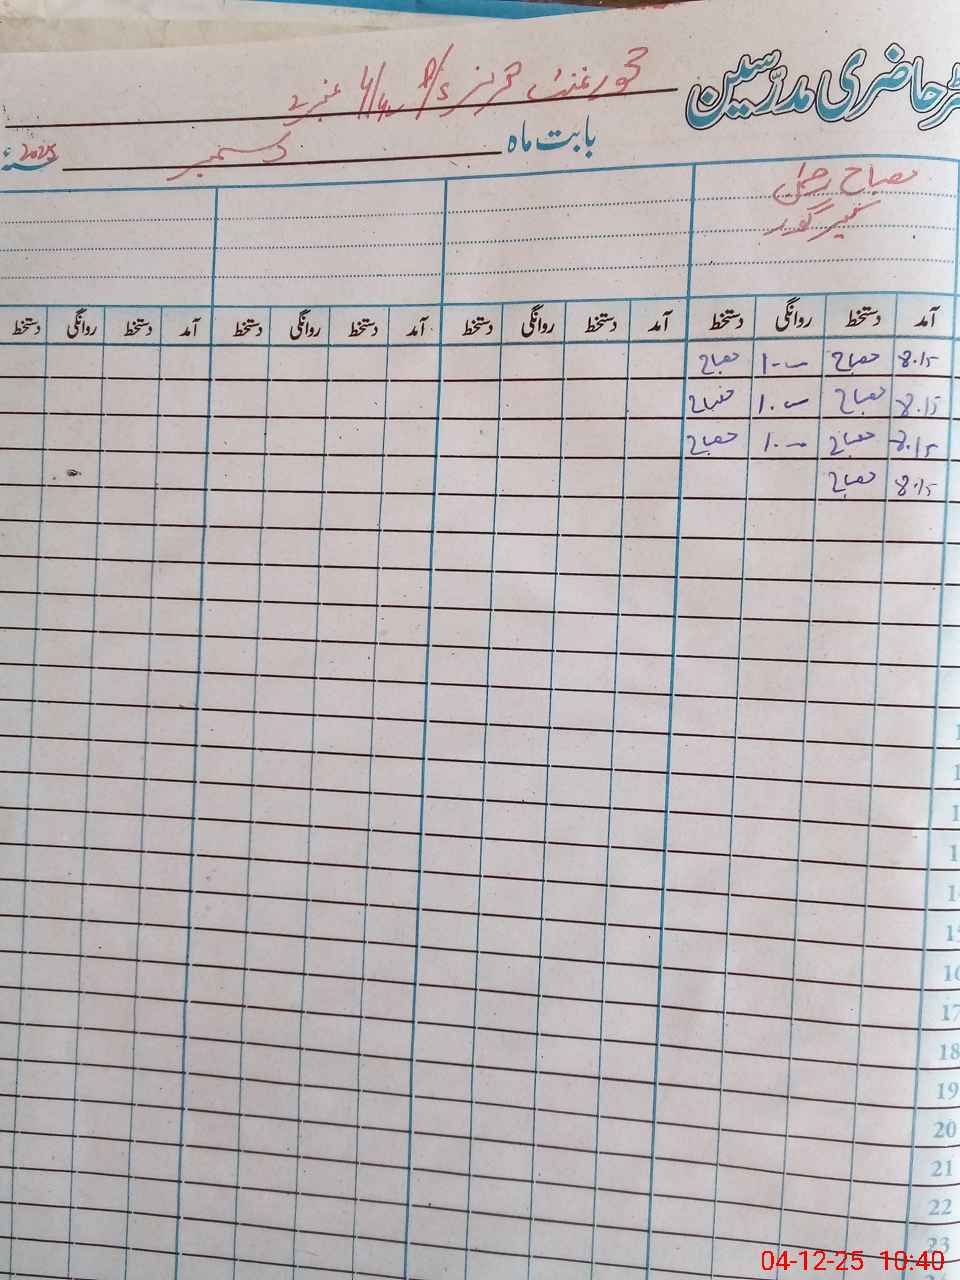 حاضری مدرّسین
گورنمنٹ گرلز P/S نمبر 2
بابت ماہ دسمبر 2025ء
مصباح
آمد دستخط روانگی دستخط آمد دستخط روانگی دستخط آمد دستخط روانگی دستخط آمد دستخط روانگی دستخط
8.15 مصباح 1.00 مصباح
8.15 مصباح 1.00 مصباح
8.15 مصباح 1.00 مصباح
8.15 مصباح
15
16
17
18
19
20
21
22
23
04-12-25 10:40